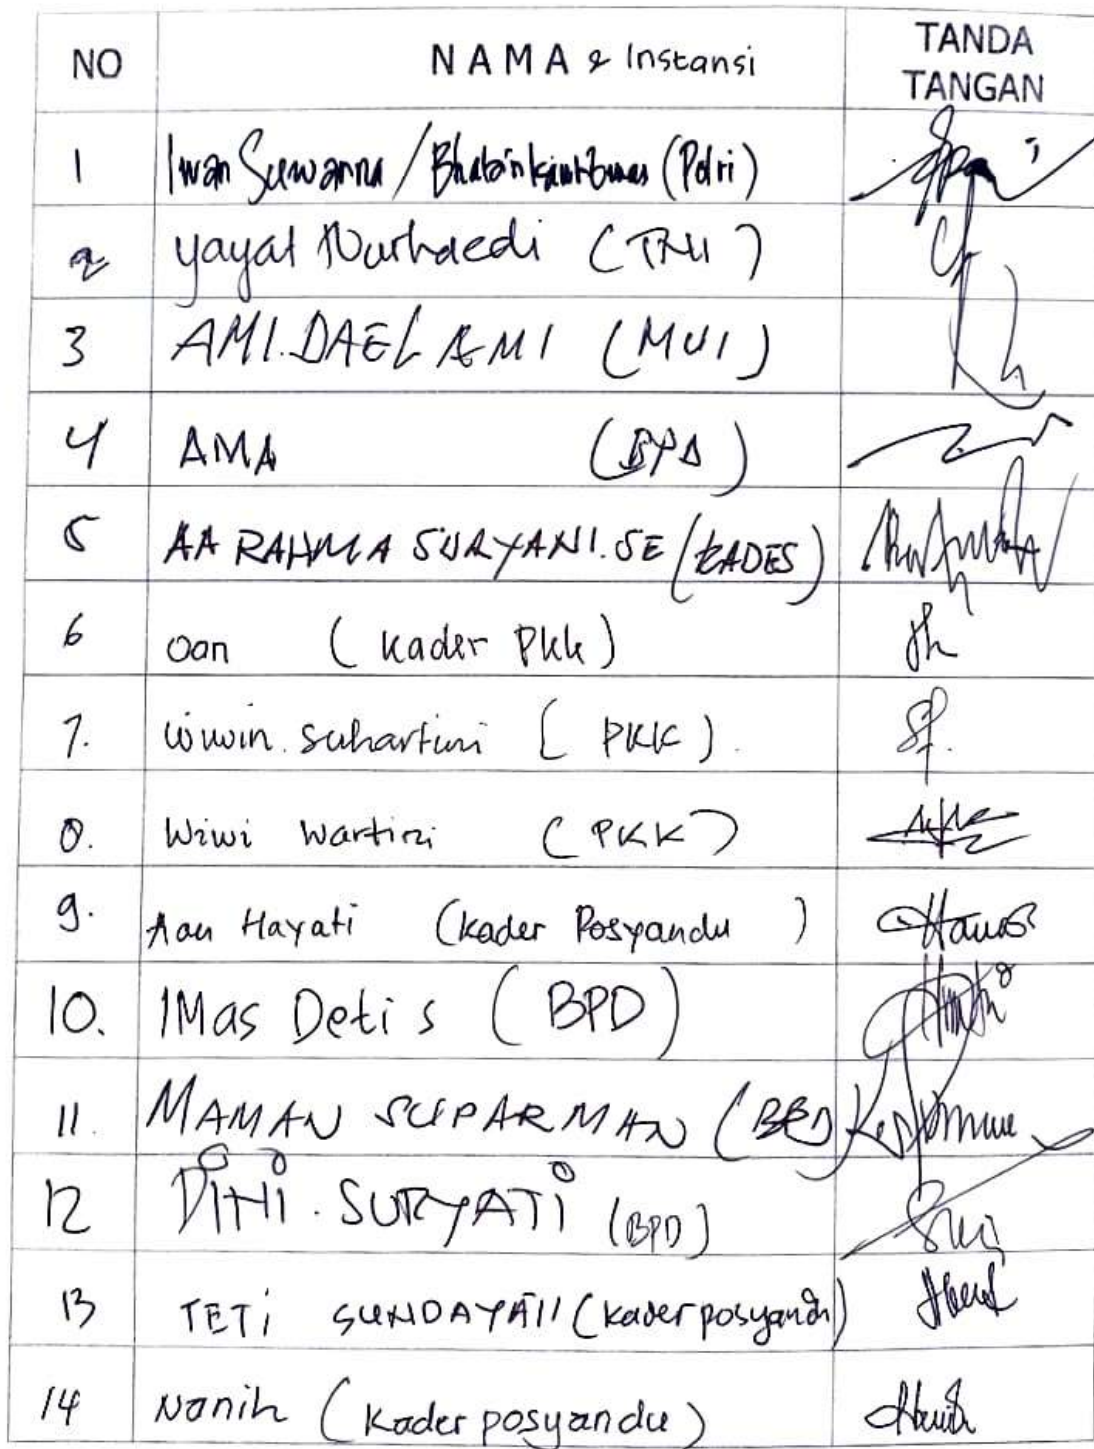 NO NAMA & Instansi TANDA TANGAN
1 Iwan Suwanna / Bhabinkamtibmas (Polri)
2 yayat Nurhaedi (TNI)
3 AMI.DAELAMI (MUI)
4 AMA (BPD)
5 AA RAHMA SURYANI.SE (KADES)
6 oan (kader PKK)
7. wiwin. suhartini (PKK).
8. Wiwi wartini (PKK)
9. Aan Hayati (kader Posyandu)
10. IMas Deti s (BPD)
11. MAMAN SUPARMAN (BPD)
12 DiNi. SURYATi (BPD)
13 TETi SUNDAYATI (kader posyandu)
14 Nanih (kader posyandu)